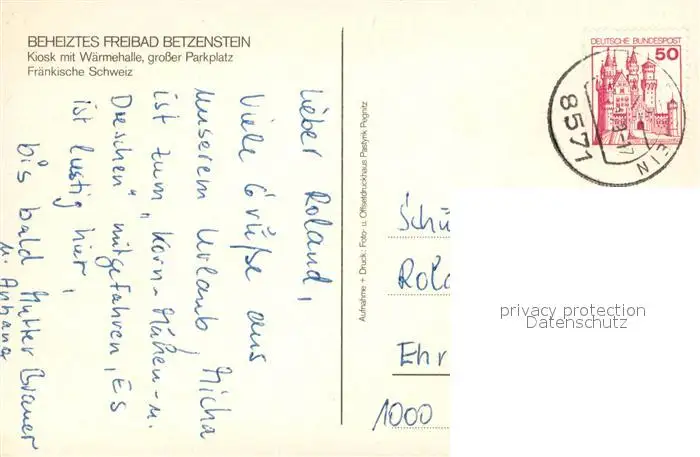 BEHEIZTES FREIBAD BETZENSTEIN
Kiosk mit Wärmehalle, großer Parkplatz
Fränkische Schweiz
Lieber Roland,
Viele Grüße aus
unserem Urlaub, Micha
ist zum „Korn-Mähen-u.
Dreschen" mitgefahren, Es
ist lustig hier,
bis bald Mutter Brauer
u. Anhang
Aufnahme + Druck: Foto- u. Offsetdruckhaus Pastyrik Pegnitz
DEUTSCHE BUNDESPOST
50
8571
EIN
Schü
Rola
Ehr
1000
privacy protection
Datenschutz